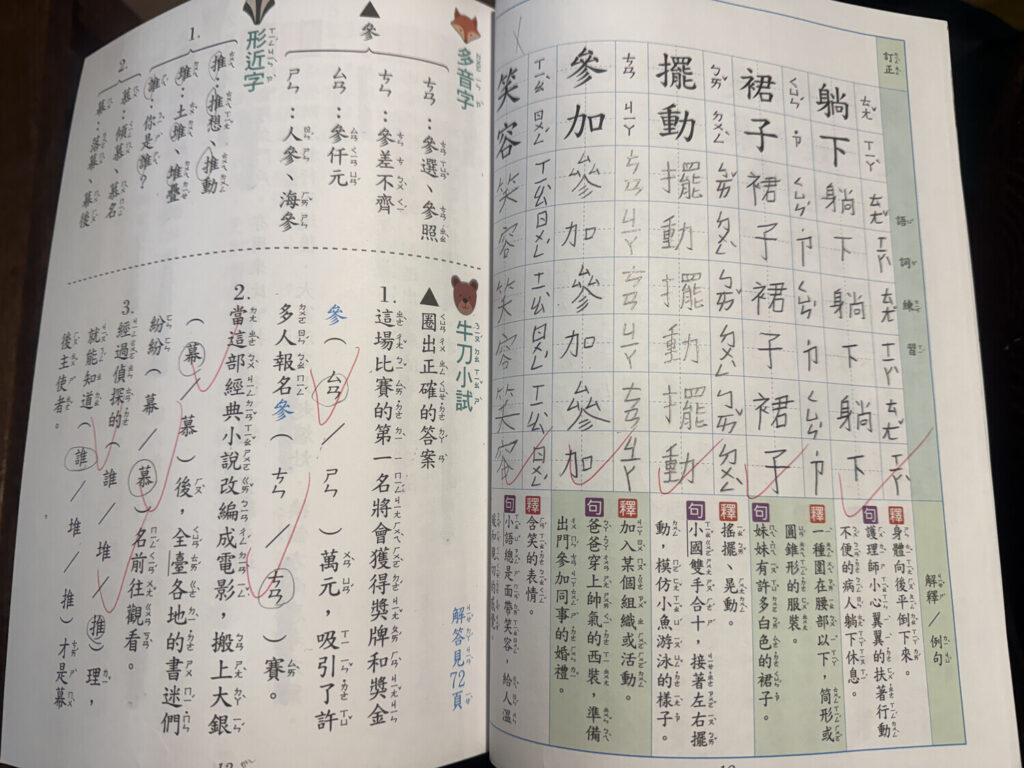 訂正
語詞練習
解釋/例句
躺下躺下躺下躺下
ㄊㄤˇ ㄒㄧㄚˋ ㄊㄤˇ ㄒㄧㄚˋ ㄊㄤˇ ㄒㄧㄚˋ ㄊㄤˇ ㄒㄧㄚˋ
釋 身體向後平倒下來。
句 護理師小心翼翼的扶著行動
不便的病人躺下休息。
裙子裙子裙子裙子
ㄑㄩㄣˊ ˙ㄗ ㄑㄩㄣˊ ˙ㄗ ㄑㄩㄣˊ ˙ㄗ ㄑㄩㄣˊ ˙ㄗ
釋 一種圍在腰部以下，筒形或
圓錐形的服裝。
句 妹妹有許多白色的裙子。
擺動擺動擺動擺動
ㄅㄞˇ ㄉㄨㄥˋ ㄅㄞˇ ㄉㄨㄥˋ ㄅㄞˇ ㄉㄨㄥˋ ㄅㄞˇ ㄉㄨㄥˋ
釋 搖擺、晃動。
句 小國雙手合十，接著左右擺
動，模仿小魚游泳的樣子。
參加參加參加參加
ㄘㄢ ㄐㄧㄚ ㄘㄢ ㄐㄧㄚ ㄘㄢ ㄐㄧㄚ ㄘㄢ ㄐㄧㄚ
釋 加入某個組織或活動。
句 爸爸穿上帥氣的西裝，準備
出門參加同事的婚禮。
笑容笑容笑容笑容
ㄒㄧㄠˋ ㄖㄨㄥˊ ㄒㄧㄠˋ ㄖㄨㄥˊ ㄒㄧㄠˋ ㄖㄨㄥˊ ㄒㄧㄠˋ ㄖㄨㄥˊ
釋 含笑的表情。
句 小語總是面帶笑容，給人溫
多音字
▲參
ㄘㄢ：參選、參照
ㄘㄣ：參差不齊
ㄙㄢ：參仟元
ㄕㄣ：人參、海參
形近字
1.
推：推想、推動
堆：土堆、堆疊
誰：你是誰？
2.
慕：傾慕、慕名
幕：落幕、幕後
牛刀小試
▲圈出正確的答案
解答見72頁
1. 這場比賽的第一名將會獲得獎牌和獎金
參（ㄙㄢ/ㄕㄣ）萬元，吸引了許
多人報名參（ㄘㄣ/ㄘㄢ）賽。
2. 當這部經典小說改編成電影，搬上大銀
（幕/慕）後，全臺各地的書迷們
紛紛（幕/慕）名前往觀看。
3. 經過偵探的（誰/堆/推）理，
就能知道（誰/堆/推）才是幕
後主使者。